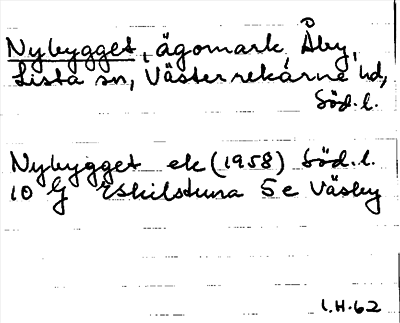 Nybygget, ägomark, Åby,
Lista sn, Västerrekarne hd,
Söd. l.
Nybygget ek (1958) Söd. l.
10 G Eskilstuna 5 e Väsby
I.H. 62